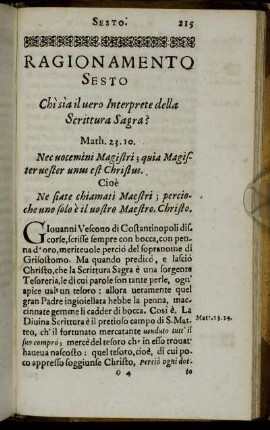 SESTO. 215
RAGIONAMENTO
SESTO
Chi sia il uero Interprete della
Scrittura Sagra?
Math. 23.10.
Nec uocemini Magistri; quia Magis-
ter uester unus est Christus.
Cioè
Ne siate chiamati Maestri; percio-
che uno solo è il uostro Maestro, Christo.
GIouanni Vescouo di Costantinopoli dis-
corse, scrisse sempre con bocca, con pen-
na d'oro, meriteuole perciò del sopranome di
Grisostomo. Ma quando predicò, e lasciò
Christo, che la Scrittura Sagra è una sorgente
Tesoreria, le di cui parole son tante perle, ogn'
apice ual un tesoro: allora ueramente quel
gran Padre ingioiellata hebbe la penna, mac-
cinnate gemme li cadder di bocca. Così è. La
Diuina Scrittura è il pretioso campo di S. Mat-
teo, ch' il fortunato mercatante uenduto tutt' il
suo comprò; mercè del tesoro ch' in esso trouat'
haueua nascosto: quel tesoro, cioè, di cui po-
co appresso soggiunse Christo, Perciò ogni dot-
Matt. 13.14.
O 4 to